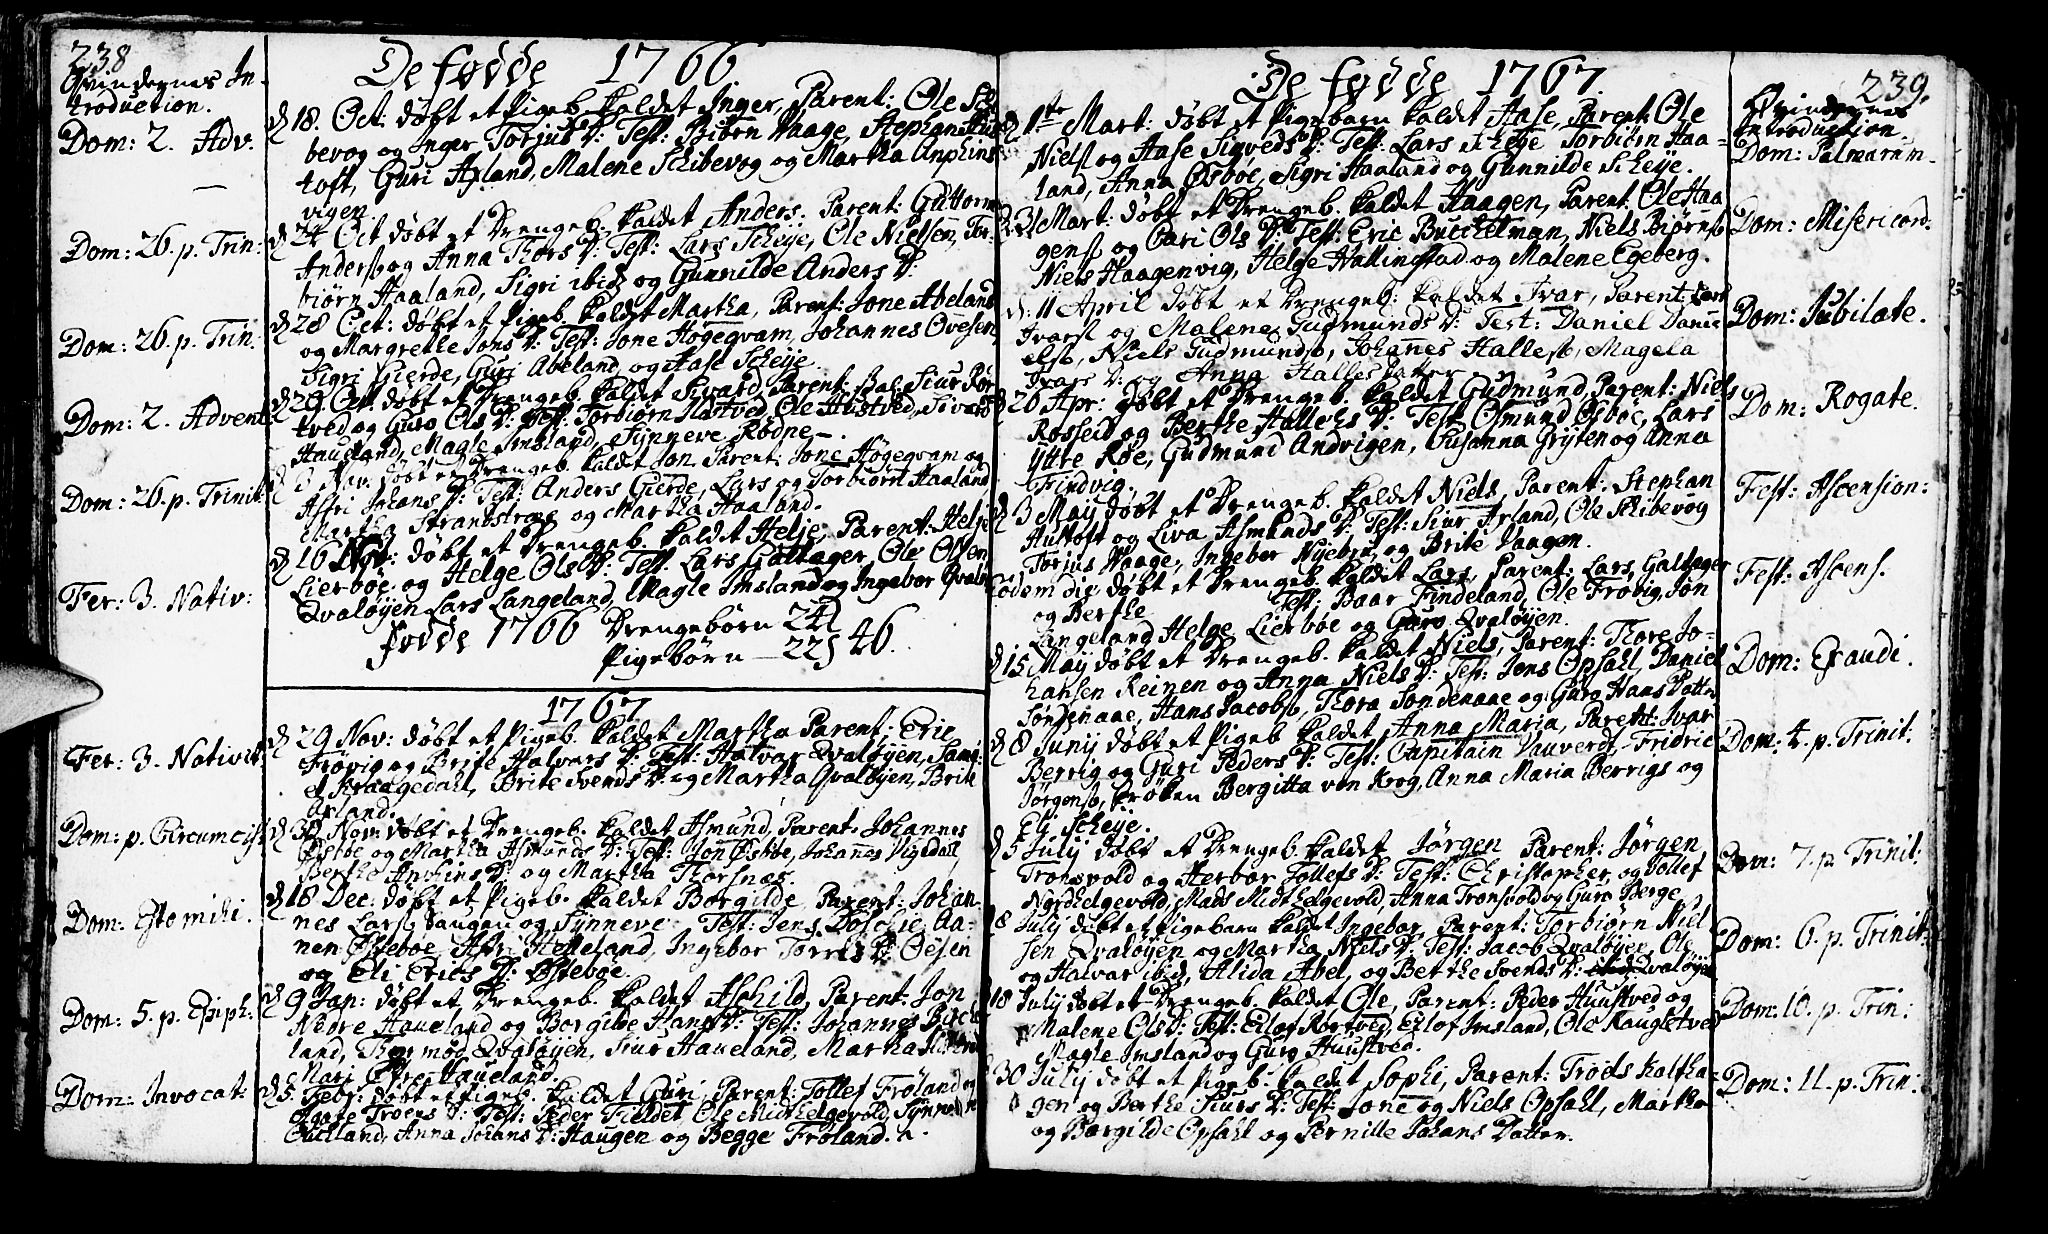 238
Qvindernes In-
troduction.
Dom: 2. Adv.
Dom: 26. p. Trin:
Dom: 26. p. Trin:
Dom: 2. Advent
Dom: 26. p. Trinit:
Fer: 3. Nativ:
Fer: 3. Nativit:
Dom: p. Circumcis:
Dom: Estomihi.
Dom: 5. p. Epiph:
Dom: Invocat:
De fødde 1766.
d 18. Oct: døbt et Pigeb. kaldet Inger, Parent: Ole
bevog og Inger Torjus D: Test: Biørn Vaage, Stephan
toft, Guri Axland, Malene Schibevog og Martha Anphins
vigen.
d 24 Oct døbt et Drengeb. kaldet Anders. Parent: Guttorm
Anders. og Anna Thors D: Test: Lars Scheije, Ole Nielsen, Tor-
biørn Haaland, Sigri ibid og Gunnilde Anders D:
d 28 Oct: døbt et Pigeb. kaldet Martha, Parent: Jone Abeland
og Margrethe Jons D: Test: Jone Høgeqvam, Johannes Ovesen,
Sigri Gierde, Guri Abeland, og Aase Scheije.
d 29 Oct: døbt et Drengeb. kaldet Sivard, Parent: Siur Rør
tved og Guro Ols D: Test: Torbiørn Ole Hustved, Sivard
Haueland, Magle Imsland, Synneve Rødne.
Nov. døbt et Drengeb. kaldet Jon. Parent: Jone Høgeqvam og
Assri Johans D: Test: Anders Gierde, Lars og Torbiørn Haaland
Martha Strandstræe og Martha Haaland.
d 16 Nov: døbt et Drengeb. kaldet Helje, Parent: Helje
Lierboe og Helge Ols D: Test: Lars Galtager, Ole Olsen
Qvaløyen Lars Langeland, Magle Imsland og Ingebor Qvaløy
Fødde 1766 Drengebørn 24
Pigebørn — 22 } 46.
1767
d 29 Nov: døbt et Pigeb. kaldet Martha Parent: Eric
Frøvig og Brite Halvars D: Test: Halvar Qvaløyen, Sam:
el Kraagedahl, Brite Svends D: og Martha Qvaløyen, Brite
Axland.
d 30 Nov: døbt et Drengeb. kaldet Asmund, Parent: Johannes
Østboe og Martha Asmunds D: Test: Jon Østboe, Johannes Vigedall
Berthe Anphins D: og Martha Thorsnæs.
d 18 Dec: døbt et Pigeb. kaldet Borgilde, Parent: Johan-
nes Lars. Saugen og Synneve Test: Jens Aa-
nen Østeboe Assri Hetteland, Ingebor Torres D: Øesen
og Eli Erics D: Østebøe.
d 9 Jan: døbt et Drengeb. kaldet Aschild, Parent: Jon
Nedre Haueland og Borgilde Hans D: Test: Johannes Birche
land, Thormod Qvaløyen, Siur Haueland, Martha
Mari Øfre Haueland
d 5. Febr: døbt et Pigeb. kaldet Guri, Parent: Tollef Frøland og
Agate Troens D: Test: Peder Tieldet, Ole Midthelgevold, Synneve
Outland, Anna Johans D: Haugen og Begge Frøland.
De fødde 1767.
d 1ste Mart: døbt et Pigebarn kaldet Aase, Parent: Ole
Niels. og Aase Sigveds D: Test: Lars Scheije Torbiørn Haa-
land, Anna Øsbøe, Sigri Haaland og Gunnilde Scheije.
d 23 Mart: døbt et Drengeb. kaldet Haagen, Parent: Ole Haa
gens. og Gari Ols D: Test: Eric Buechelman, Niels Biørns.
Niels Haagenvig, Helge Hallingstad og Malene Egeberg.
d: 11 April døbt et Drengeb: kaldet Ivar, Parent: Lars
Ivars. og Malene Gudmunds D: Test: Daniel Dani
else, Niels Gudmunds., Johannes Halles., Magela
Ivars D: og Anna Halles Datter
d 26 Apr: døbt et Drengeb. kaldet Gudmund, Parent: Niels
Rosseid og Berthe Hallehs D: Test: Osmund Øsboe, Lars
Yttre Røe, Gudmund Andvigen, Susanna Gryten og Anna
Trindvig.
d 3 Maij døbt et Drengeb. kaldet Niels, Parent: Stephan
Hustoft og Liva Asmunds D: Test: Siur Axland, Ole Schibevog
Torjus Waage, Ingebor Nyebru, og Brite Vaagen.
Eodem die døbt et Drengeb. kaldet Lars, Parent: Lars Galtager
og Berthe Test: Baar Findeland, Ole Frøvig, Jon
Langeland Helge Lierboe og Guro Qvaløyen.
d 15 Maij døbt et Drengeb. kaldet Niels, Parent: Thore Jo-
hansen Reinen og Anna Niels D: Test: Jens Opsahl, Daniel
Søndenaae, Hans Jacobs., Thora Søndenaae og Guro Haas Datter
d 8 Junij døbt et Pigeb kaldet Anna Maria, Parent: Ivar
Berrig og Guri Peders D: Test: Capitain Vauverdt, Fridric
Jørgens., Frøken Bergitta von Krog, Anna Maria Berrigs og
Eli Scheije.
d 5 Julij døbt et Drengeb. kaldet Jørgen Parent: Jørgen
Tronsvold og Herbor Tollefs D: Test: Christopher og Tollef
Nordhelgevold, Mads Midthelgevold, Anna Tronsvold og Guro Berge
18 Julij døbt et Pigebarn kaldet Ingebor, Parent: Torbiørn Niel
sen Qvaløyen og Martha Niels D: Test: Jacob Qvaløyen, Ole
og Halvar ibid, Alida Abel, og Berthe Svends D: Qvaløyen
18 Julij døbt et Drengeb. kaldet Ole, Parent: Peder Huustved og
Malene Ols D: Test: Eilof Rørtved, Eilof Imsland, Ole Haugstved
Magle Imsland og Guro Huustved.
30 Julij døbt et Pigeb. kaldet Sophi, Parent: Troels Kaltha-
gen og Berthe Siurs D: Test: Jone og Niels Opsahl, Martha
og Borgilde Opsahl og Pernille Johans Datter.
239.
Qvindernes
Introduction.
Dom: Palmarum.
Dom: Misericord:
Dom: Jubilate.
Dom: Rogate.
Fest: Ascension:
Fest: Ascens.
Dom: Exaudi.
Dom: 4. p. Trinit:
Dom: 7. p. Trinit:
Dom: 6. p. Trinit:
Dom: 10. p. Trin:
Dom: 11. p. Trin: